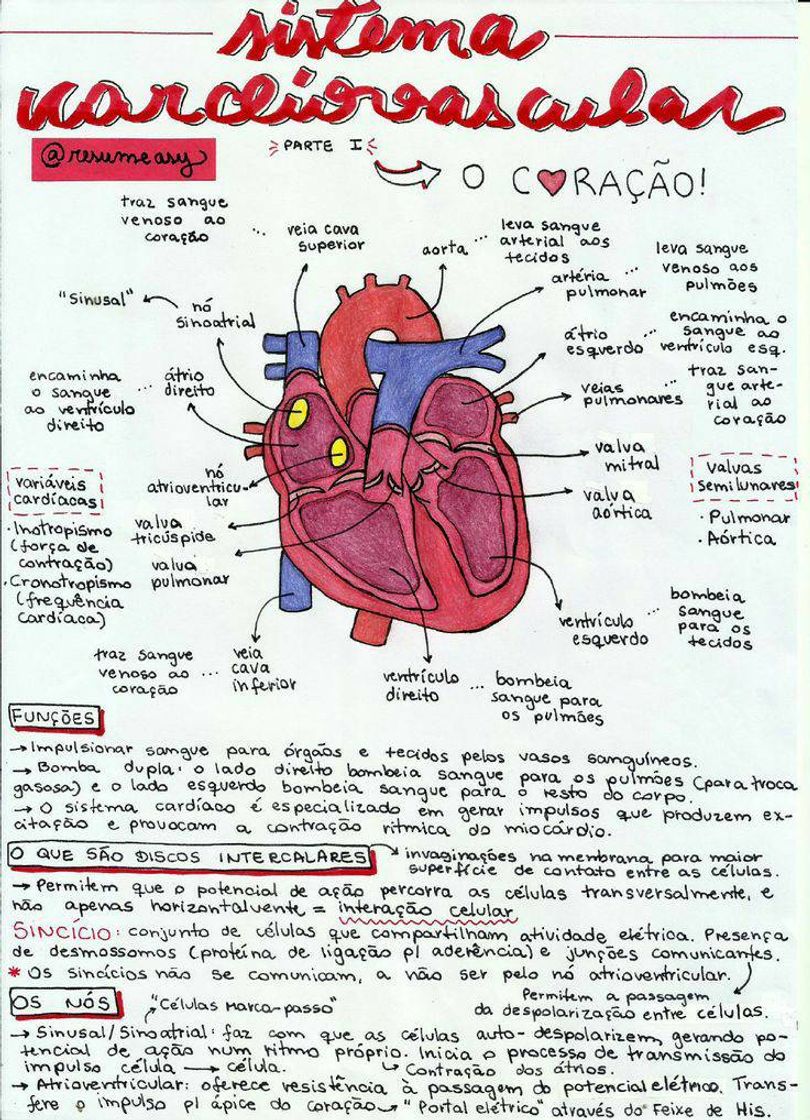 sistema
cardiovascular
@resumeasy
PARTE I
O CORAÇÃO!
traz sangue
venoso ao
coração
...
veia cava
superior
aorta
...
leva sangue
arterial aos
tecidos
artéria
pulmonar
...
leva sangue
venoso aos
pulmões
"Sinusal"
nó
sinoatrial
átrio
esquerdo
...
encaminha o
sangue ao
ventrículo esq.
encaminha
o sangue
ao ventrículo
direito
...
átrio
direito
veias
pulmonares
...
traz san-
gue arte-
rial ao
coração
nó
atrioventricu-
lar
valva
mitral
valva
aórtica
valvas
semilunares
· Pulmonar
· Aórtica
variáveis
cardíacas
· Inotropismo
(força de
contração)
· Cronotropismo
(frequência
cardíaca)
valva
tricúspide
valva
pulmonar
ventrículo
esquerdo
...
bombeia
sangue
para os
tecidos
traz sangue
venoso ao
coração
...
veia
cava
inferior
ventrículo
direito
...
bombeia
sangue para
os pulmões
FUNÇÕES
→ Impulsionar sangue para órgãos e tecidos pelos vasos sanguíneos.
→ Bomba dupla: o lado direito bombeia sangue para os pulmões (para troca
gasosa) e o lado esquerdo bombeia sangue para o resto do corpo.
→ O sistema cardíaco é especializado em gerar impulsos que produzem ex-
citação e provocam a contração rítmica do miocárdio.
O QUE SÃO DISCOS INTERCALARES
invaginações na membrana para maior
superfície de contato entre as células.
→ Permitem que o potencial de ação percorra as células transversalmente, e
não apenas horizontalvente = interação celular
SINCÍCIO: conjunto de células que compartilham atividade elétrica. Presença
de desmossomos (proteína de ligação p/ aderência) e junções comunicantes.
* Os sincícios não se comunicam, a não ser pelo nó atrioventricular.
Permitem a passagem
da despolarização entre células.
OS NÓS
"Células Marca-passo"
→ Sinusal/Sinoatrial: faz com que as células auto-despolarizem, gerando po-
tencial de ação num ritmo próprio. Inicia o processo de transmissão do
impulso célula → célula.
Contração dos átrios.
→ Atrioventricular: oferece resistência à passagem do potencial elétrico. Trans-
fere o impulso p/ ápice do coração → "Portal elétrico" através do Feixe de His.